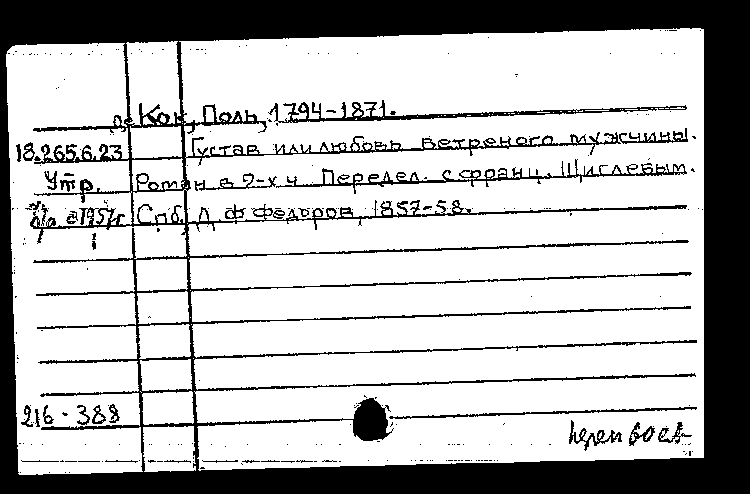 де Кок, Поль, 1794-1871.
18.265.6.23 Густав или любовь ветреного мужчины.
Утр. Роман в 2-х ч. Передел. с франц. Щиглевым.
1957г Спб, Д. Ф. Федоров, 1857-58.
216-388